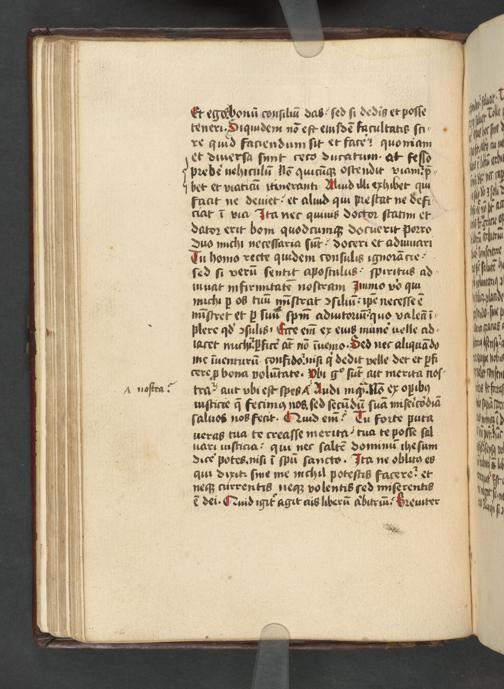 Et ego bonū consiliū das· sed si dedis et posse
teneri· Siquidem nō est eiusdē facultatis sci-
re quid faciendum sit et facer̄· quoniam
et diuersa sunt ceco ducatum· at fesso
prebē vehiculū Nō quicūq̨ ostendit viam p̄-
bet et viaticū itineranti· Aliud illi exhibet qui
facit ne deuiet· et aliud qui prestat ne defi-
ciat ī via Ita nec quiuis doctor statim et
dator erit boni quodcumq̨ docuerit Porro
duo michi necessaria sūt· doceri et adiuuari
Tu homo recte quidem consulis ignorācie·
sed si verū sentit apostolus· spiritus ad-
iuuat infirmitatē nostram Immo v̊o qui
michi p os tuū mīstrat ꝯsiliū· ip̄e necesse ē
mīstret et p suū sp̄m adiutoriū quo valeā ī-
plere qd̓ ꝯsilis· Ecce em̄ ex eius mun̄e velle ad-
iacet michi p̄ficē aūt nō īuenio· Sed nec aliquādo
me īuenturū confido nisi q̓ dedit velle det et p̄fi-
cere p bona volūtate· Vbi g̊ sūt ait merita nos-
tra· aut vbi est spes ʌ Audi inqt̓ Nō ex opibꝯ
ʌ nostra·
iusticie q̄ fecimꝯ nos sed secūdū suā misericōdiā
saluos nos fecit· Quid em̄· Tu forte puta-
ueras tua te creasse merita· tua te posse sal-
uari iusticia· qui nec saltē dominū ihesum
dicē potes nisi ī spū sancto· Ita ne oblitꝯ es
qui dixit sine me nichil potestis facere· et
neq̨ currentis neq̨ volentis sed miserentis
ē dei· Quid igit̓ agit ais liberū arbitriū· Breuiter